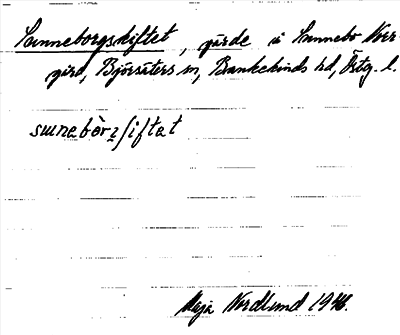 Sunneborgskiftet, gärde i Sunnebo Norr-
gård, Björsäters sn, Bankekinds hd, Östg. l.
sunebòrʃiftat
Maja Nordlund 1946.